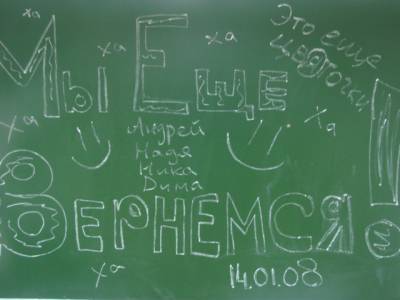 ха
ха
ха
Это еще
цветочки
Мы Еще
ха
ха
Андрей
Надя
Ника
Дима
ВЕРНЕМСЯ!
ха
14.01.08